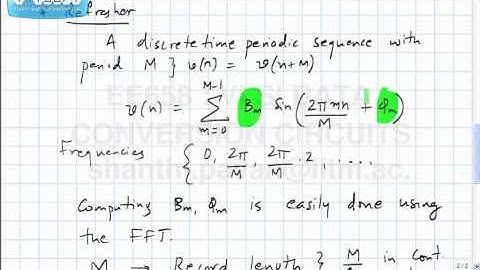 Refresher
A discrete time periodic sequence with
period M } v(n) = v(n+M)
v(n) = M-1 ∑ m=0 Bm sin(2πmn/M + Φm)
EE658 VLSI DATA
CONVERSION CIRCUITS
Frequencies { 0, 2π/M, 2π/M · 2, ....
Computing Bm, Φm is easily done using
the FFT.
M → Record length } M in cont.
2/2